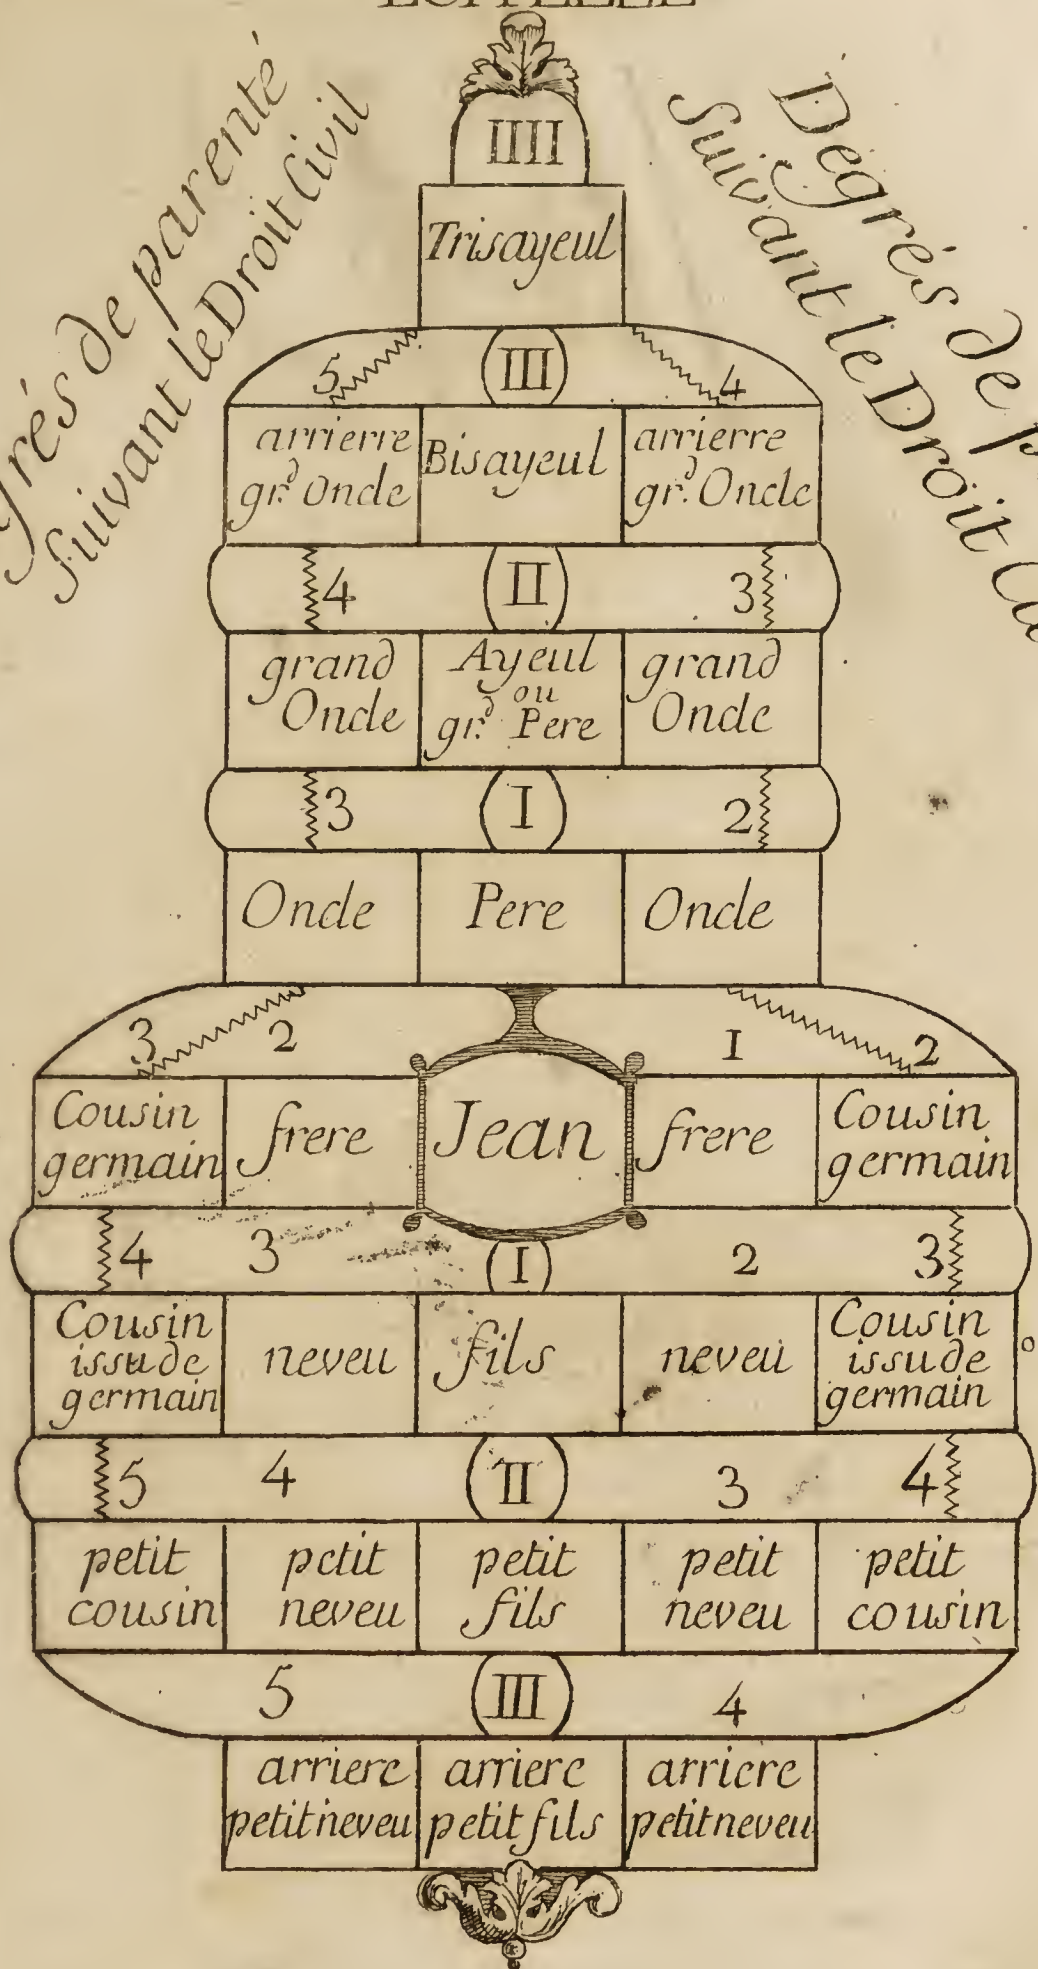 grés de parenté
Suivant le Droit Civil
Dégrés de p
Suivant le Droit
IIII
Trisayeul
5 III 4
arrierre gr.d Oncle
Bisayeul
arrierre gr.d Oncle
4 II 3
grand Oncle
Ayeul ou gr.d Pere
grand Oncle
3 I 2
Oncle
Pere
Oncle
3 2 1 2
Cousin germain
frere
Jean
frere
Cousin germain
4 3 I 2 3
Cousin issu de germain
neveu
fils
neveu
Cousin issu de germain
5 4 II 3 4
petit cousin
petit neveu
petit fils
petit neveu
petit cousin
5 III 4
arriere petit neveu
arriere petit fils
arriere petit neveu